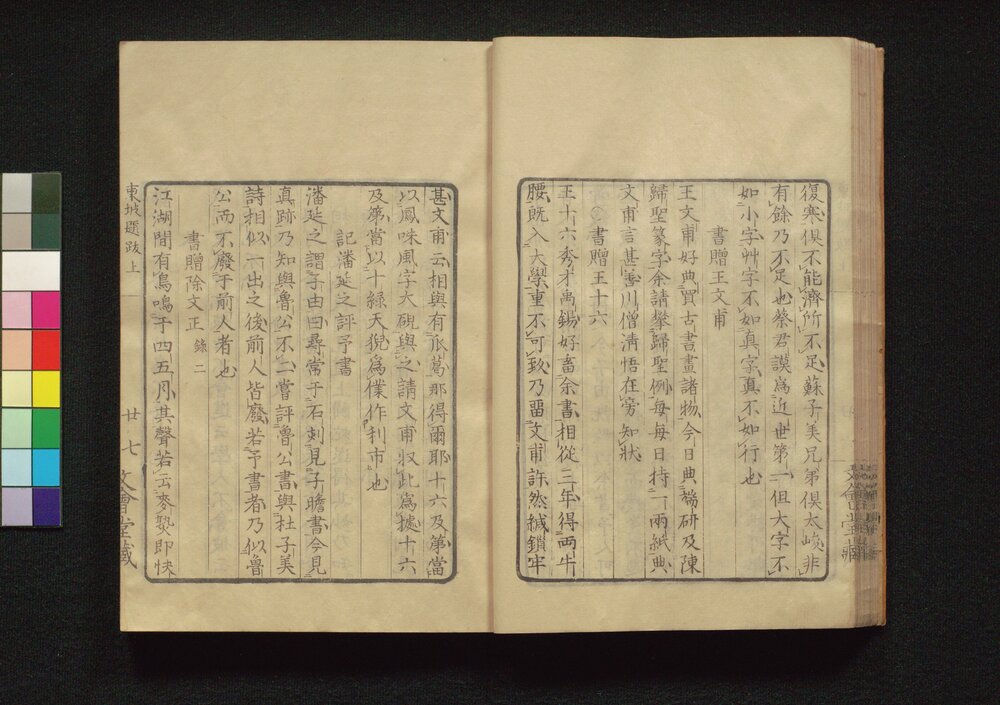 復寒俱不能濟所不足蘇子美兄弟俱太峻非
有餘乃不足也蔡君謨爲近世第一但大字不
如小字艸字不如真字真不如行也
書贈王文甫
王文甫好典買古書畫諸物今日典端研及陳
歸聖篆字余請攀歸聖例每每日持一兩紙典
文甫言甚善川僧清悟在旁知狀
書贈王十六
王十六秀才禹錫好畜余書相從三年得兩牛
腰既入大學重不可致乃畱文甫許然緘鎖牢
甚文甫云相與有瓜葛那得爾耶十六及第當
以鳳咮風字大硯與之請文甫収此爲據十六
及第當以十緑天猊爲僕作利市也
記潘延之評予書
潘延之謂子由曰尋常于石刻見子瞻書今見
真跡乃知與魯公不二嘗評魯公書與杜子美
詩相似一出之後前人皆廢若予書者乃似魯
公而不廢于前人者也
書贈徐文正 録二
江湖閒有鳥鳴于四五月其聲若云麥熟即快
東坡題跋上 廿七 文會堂藏